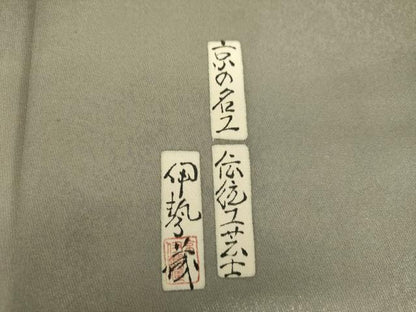 京の名工
伝統工芸士
伊勢蔵